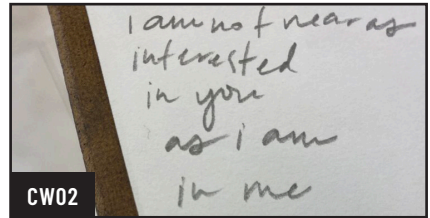 i am not near as
interested
in you
as i am
in me
CW02